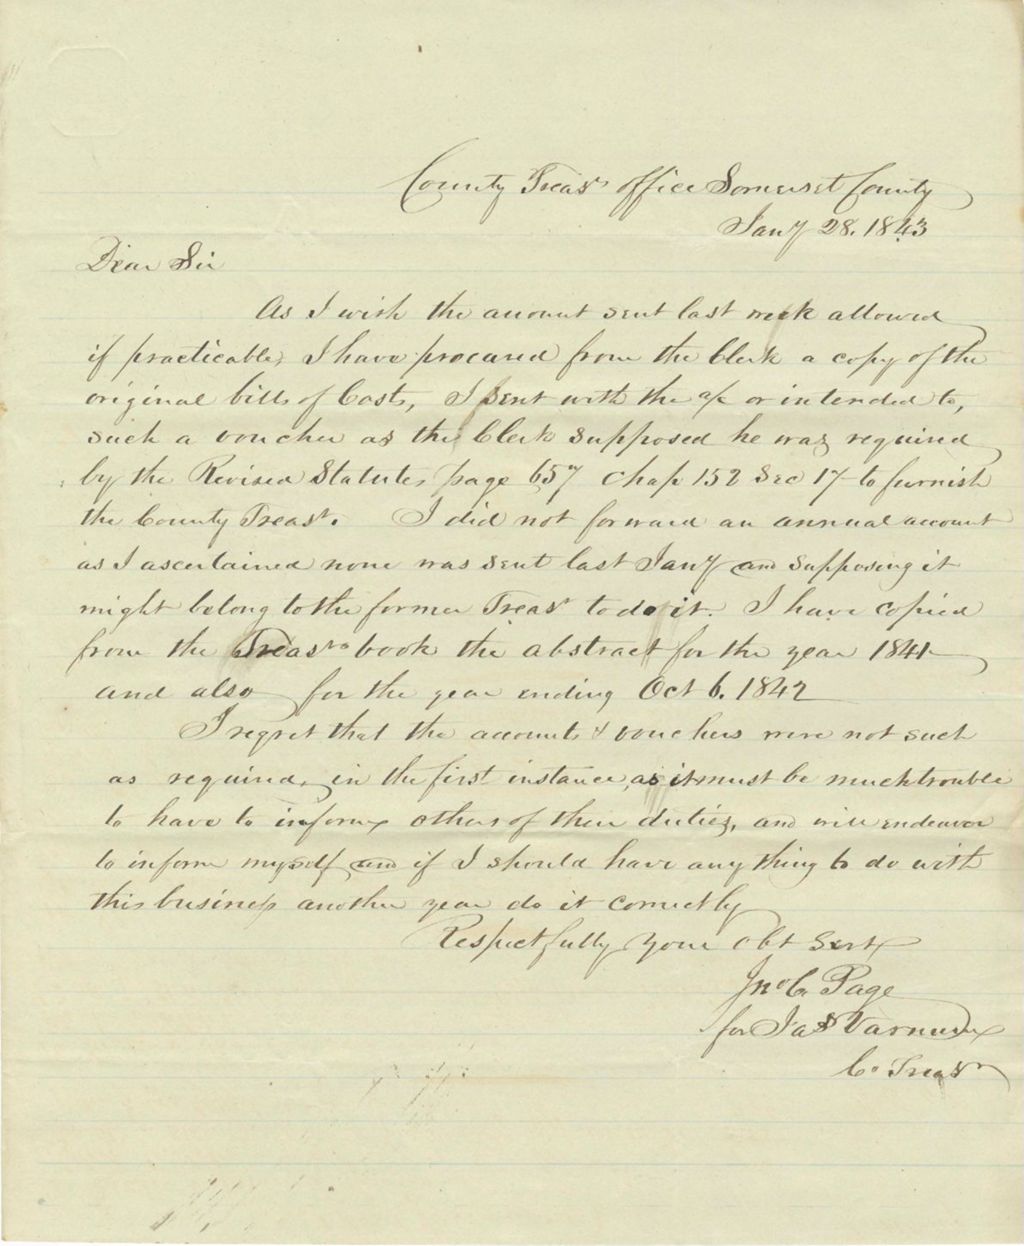 County Treas^r office Somerset County
Jany 28. 1843
Dear Sir
As I wish the account sent last week allowed
if practicable, I have procured from the Clerk a copy of the
original bills of Costs, I sent with the a/c or intended to,
such a voucher as the Clerk supposed he was required
by the Revised Statutes page 657 Chap 152 Sec 17 to furnish
the County Treasr. I did not forward an annual account
as I ascertained none was sent last Jany and supposing it
might belong to the former Treasr to do it. I have copied
from the Treasrs book the abstract for the year 1841
and also for the year ending Oct 6. 1842
I regret that the accounts & vouchers were not such
as required, in the first instance, as it must be much trouble
to have to inform others of their duties, and will endeavor
to inform myself and if I should have any thing to do with
this business another year do it correctly
Respectfully your obt Servt
Jno C. Page
for Jas Varnum
Co Treasr